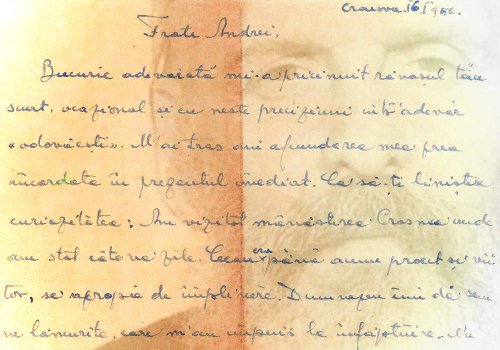 Craiova. 16 I 9
Frate Andrei,
Bucurie adevarată mi-a pricinuit răvașul tău
scurt, ocazional și cu niște preciziuni într'adevăr
M'ai tras din afundarea mea prea
încordata în prezentul imediat. Ca să-ți liniștesc
curiozitatea: Am vizitat mânăstirea Crasna unde
am stat câteva zile. Ceea ce era până acum proect și vii
tor, se apropia de împlinire. Dumnezeu îmi dă sem
ne lămurite, care m'au împins la înfăptuire. M'a